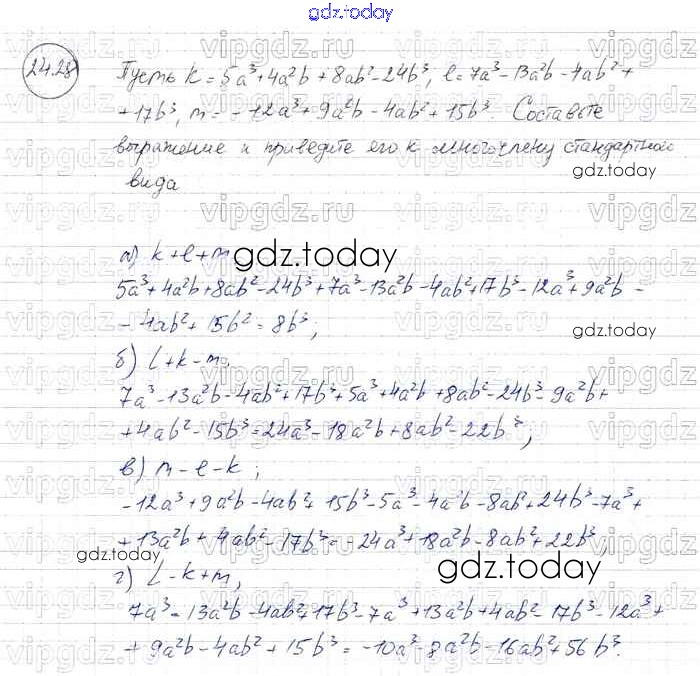 gdz.today
24.28
Пусть k = 5a³+4a²b+8ab²-24b³, l=7a³-13a²b-4ab²+
+17b³, m = -12a³+9a²b-4ab²+15b³. Составьте
выражение и приведите его к многочлену стандартного
вида
а) k+l+m
gdz.today
5a³+4a²b+8ab²-24b³+7a³-13a²b-4ab²+17b³-12a³+9a²b-
-4ab²+15b²=8b³,
gdz.today
б) l+k-m,
7a³-13a²b-4ab²+17b³+5a³+4a²b+8ab²-24b³-9a²b+
+4ab²-15b³=24a³-18a²b+8ab²-22b³,
в) m-l-k;
-12a³+9a²b-4ab²+15b³-5a³-4a²b-8ab²+24b³-7a³+
+13a²b+4ab²-17b³=-24a³+18a²b-8ab²+22b³
gdz.today
gdz.today
г) l-k+m,
7a³-13a²b-4ab²+17b³-7a³+13a²b+4ab²-17b³-12a³+
+9a²b-4ab²+15b³=-10a³-8a²b-16ab²+56b³.
vipgdz.ru